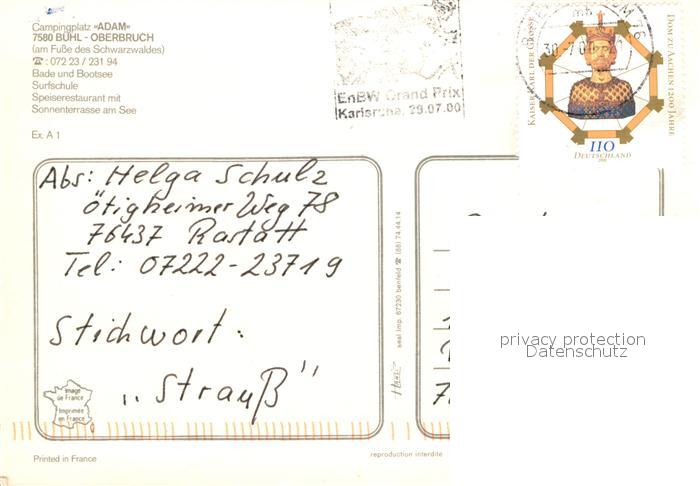 Campingplatz «ADAM»
7580 BÜHL - OBERBRUCH
(am Fuße des Schwarzwaldes)
☎ : 072 23 / 231 94
Bade und Bootsee
Surfschule
Speiserestaurant mit
Sonnenterrasse am See
Ex. A 1
EnBW Grand Prix
Karlsruhe, 29.07.00
KAISER KARL DER GROSSE
DOM ZU AACHEN 1200 JAHRE
110
DEUTSCHLAND
Abs: Helga Schulz
Ötigheimer Weg 78
76437 Rastatt
Tel: 07222-23719
Stichwort:
„Strauß"
Image
de France
Imprimée
en France
seal imp. 67230 benfeld ☎ (88) 74.44.14
privacy protection
Datenschutz
Printed in France
reproduction interdite